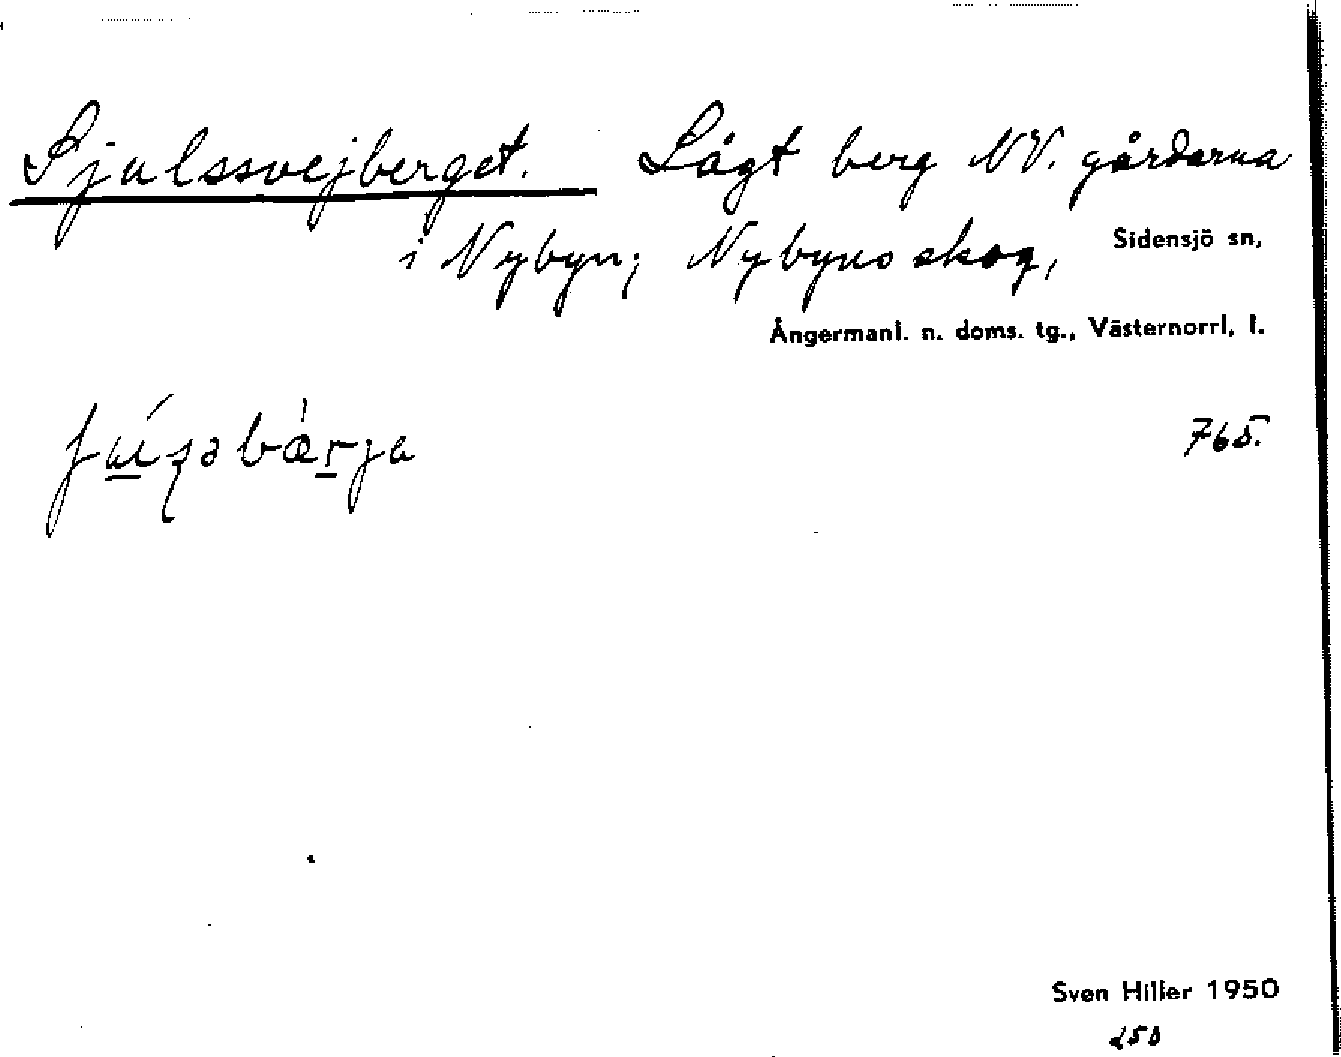 Sjulssvejberget. Lågt berg NV. gårdarna
i Nybyn; Nybyns skog,
Sidensjö sn,
Ångermanl. n. doms. tg., Västernorrl. l.
765.
Sven Hiller 1950